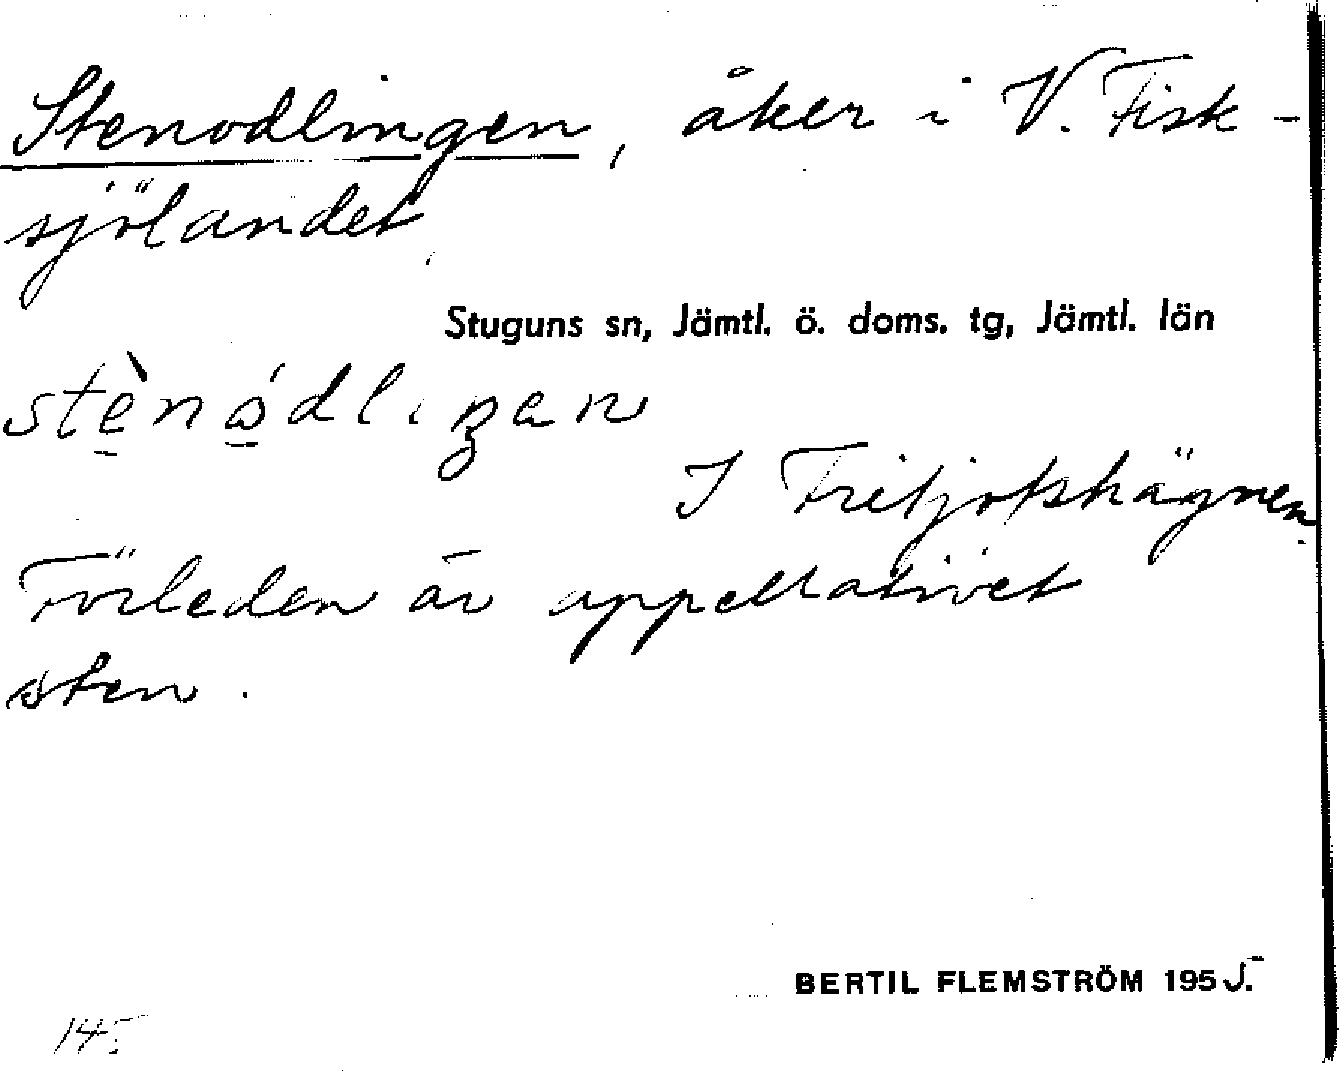 Stenodlingen, åker i V. Fisk-
sjölandet
Stuguns sn, Jämtl. ö. doms. tg, Jämtl. län
I Fritjofshägnen
Förleden är appellativet
sten.
BERTIL FLEMSTRÖM 1955.
145